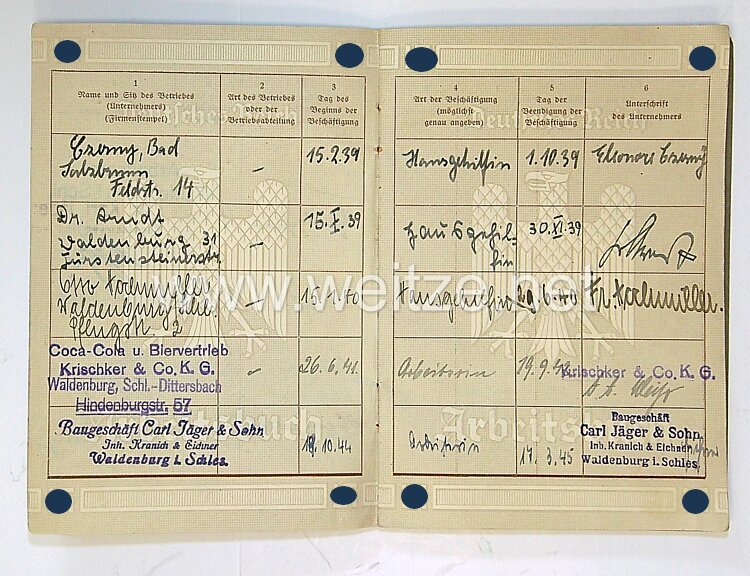 1
Name und Sitz des Betriebes
(Unternehmers)
(Firmenstempel)
2
Art des Betriebes
oder der
Betriebsabteilung
3
Tag des
Beginns der
Beschäftigung
4
Art der Beschäftigung
(möglichst
genau angeben)
5
Tag der
Beendigung der
Beschäftigung
6
Unterschrift
des Unternehmers
Czerny, Bad
Salzbrunn
Feldstr. 14
–
15.2.39
Hausgehilfin
1.10.39
Eleonore Czerny
Dr. Arndt
Waldenburg 31
Fürstensteinerstr
–
15.X.39
Hausgehil-
fin
30.XI.39
Otto
Waldenburg Schl.
2
–
15.1.40
Hausgehilfin
Fr.
Coca-Cola u. Biervertrieb
Krischker & Co. K. G.
Waldenburg, Schl.-Dittersbach
Hindenburgstr. 57
26.6.41.
Arbeiterin
19.9.
Krischker & Co. K. G.
Baugeschäft Carl Jäger & Sohn
Inh. Kranich & Eichner
Waldenburg i. Schles.
10.44
Arbeiterin
17.3.45
Baugeschäft
Carl Jäger & Sohn
Inh. Kranich & Eichner
Waldenburg i. Schles.
Deutsches Reich
Arbeitsbuch
Deutsches Reich
Arbeitsbuch
www.weitze.net